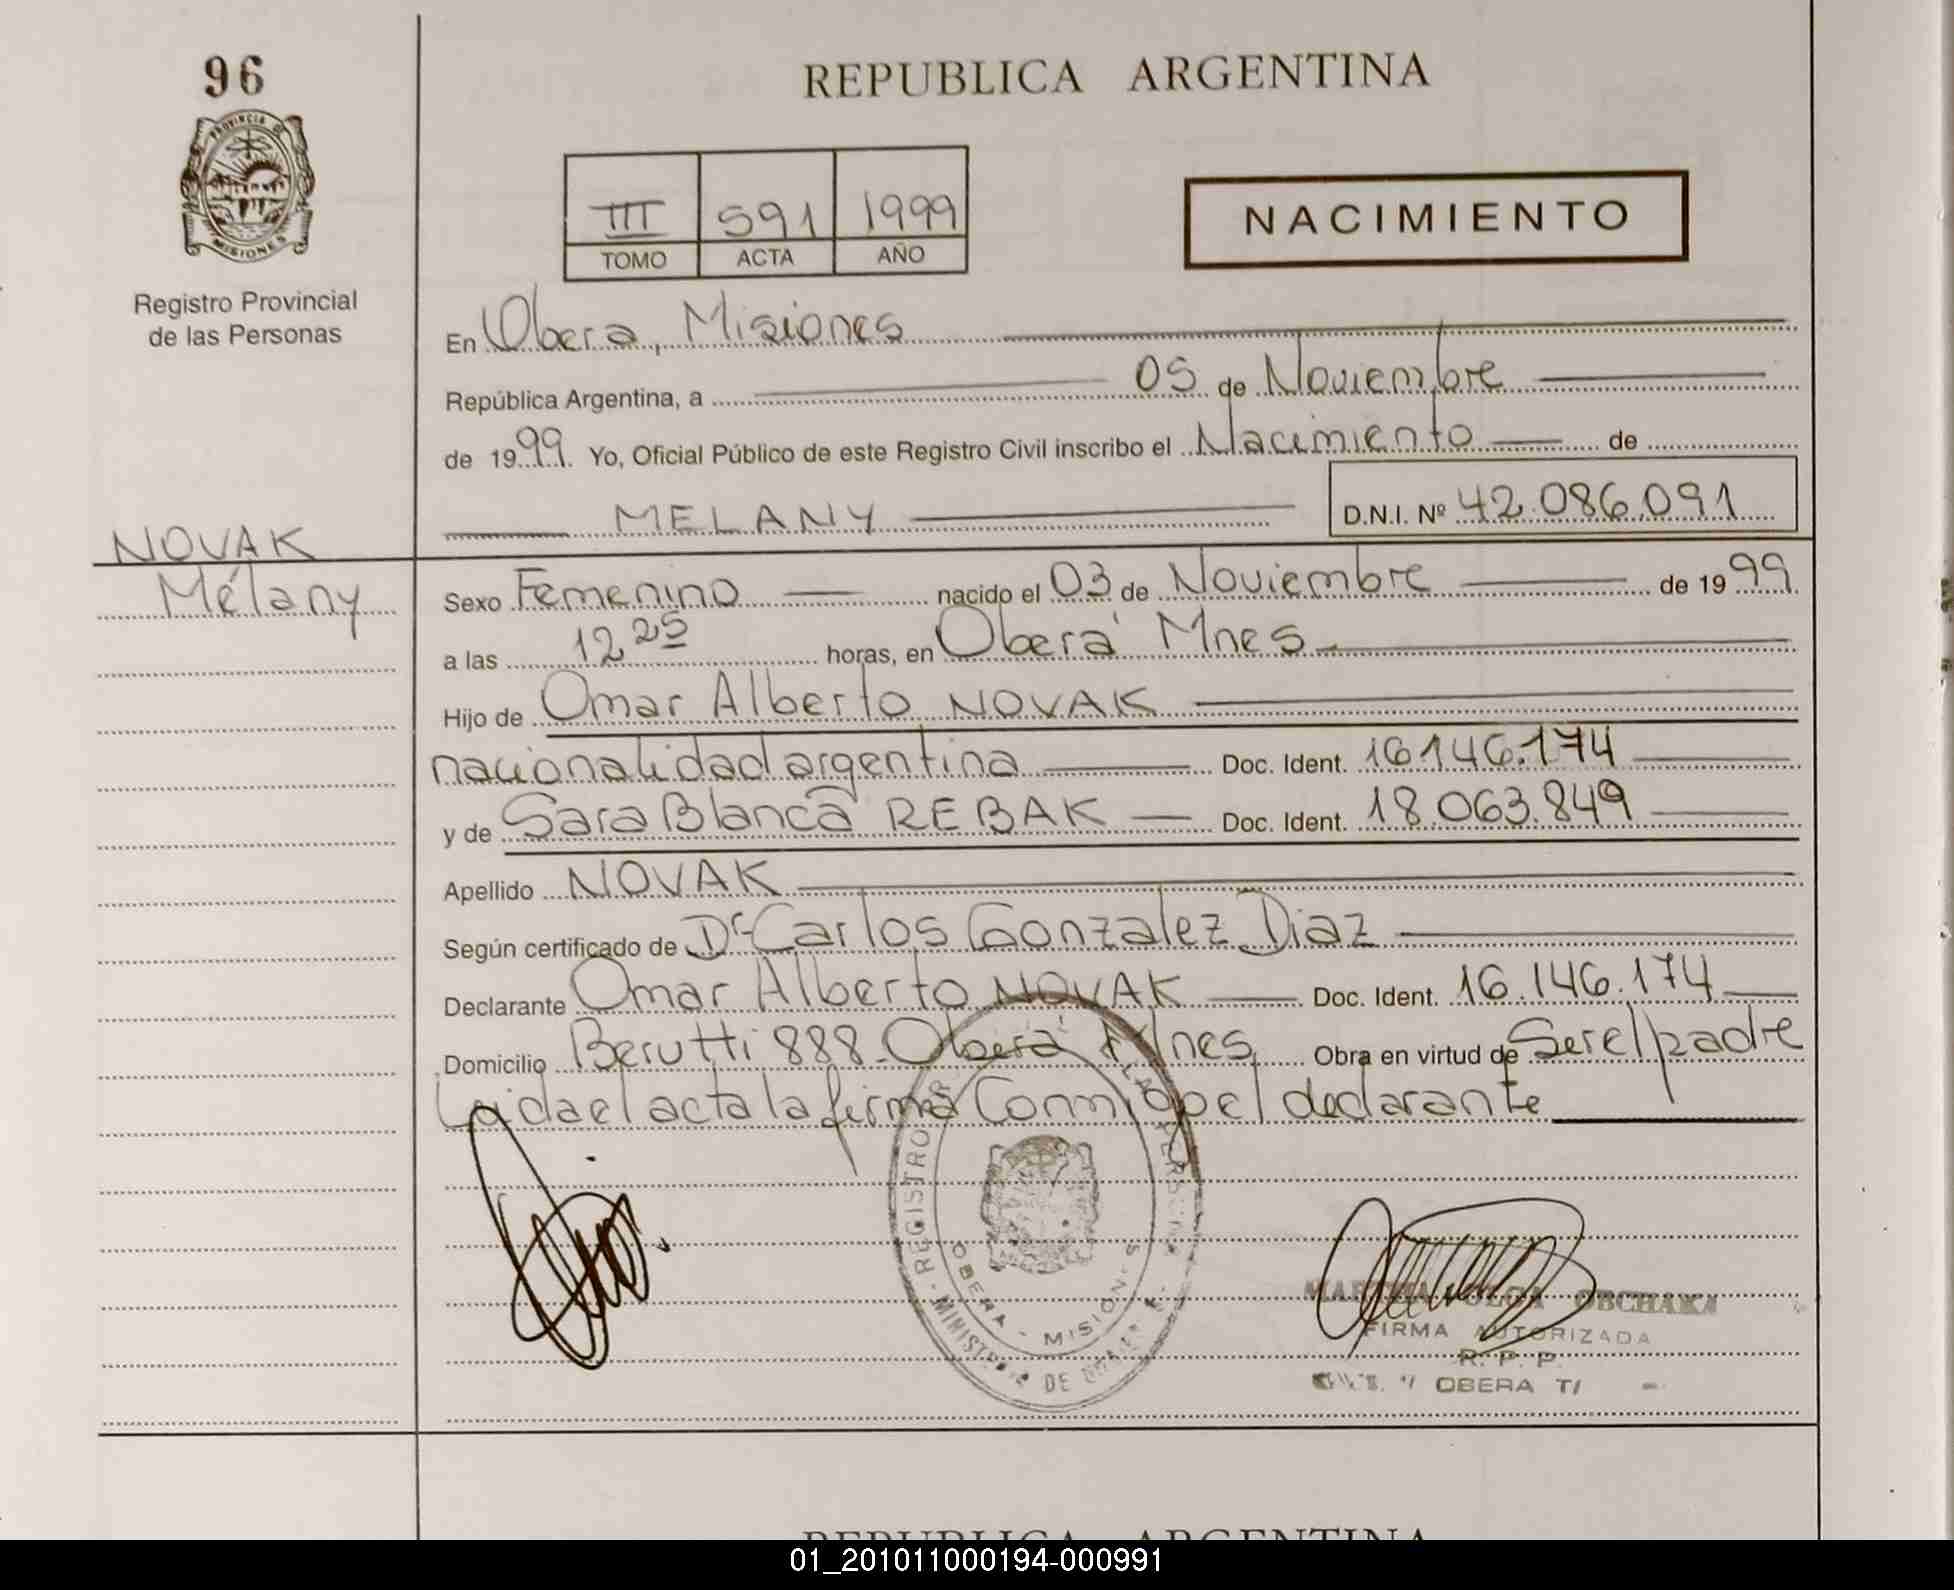 96
PROVINCIA DE
MISIONES
Registro Provincial
de las Personas
REPUBLICA ARGENTINA
III 591 1999
TOMO ACTA AÑO
NACIMIENTO
En Obera, Misiones
República Argentina, a 05 de Noviembre
de 1999. Yo, Oficial Público de este Registro Civil inscribo el Nacimiento de
MELANY D.N.I. Nº 42.086.091
NOVAK
Mélany
Sexo Femenino nacido el 03 de Noviembre de 1999
a las 12 25 horas, en Oberá Mnes
Hijo de Omar Alberto NOVAK
nacionalidad argentina Doc. Ident. 16.146.174
y de Sara Blanca REBAK Doc. Ident. 18.063.849
Apellido NOVAK
Según certificado de Dr Carlos Gonzalez Diaz
Declarante Omar Alberto NOVAK Doc. Ident. 16.146.174
Domicilio Berutti 888 Oberá Mnes Obra en virtud de Ser el padre
Leida el acta la firma Conmigo el declarante
REGISTRO LAS PERSONAS
OBERA - MISIONES
MINISTERIO DE
OLGA OBCHAKA
FIRMA AUTORIZADA
R. P. P.
OBERA
REPUBLICA ARGENTINA
01_201011000194-000991